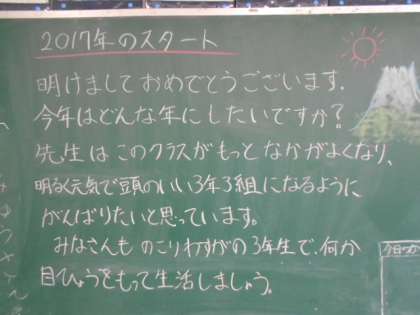 2017年のスタート
明けましておめでとうございます.
今年はどんな年にしたいですか?
先生はこのクラスがもっとなかがよくなり、
明るく元気で頭のいい3年3組になるように
がんばりたいと思っています。
みなさんも のこりわずかの3年生で、何か
目ひょうをもって生活しましょう。